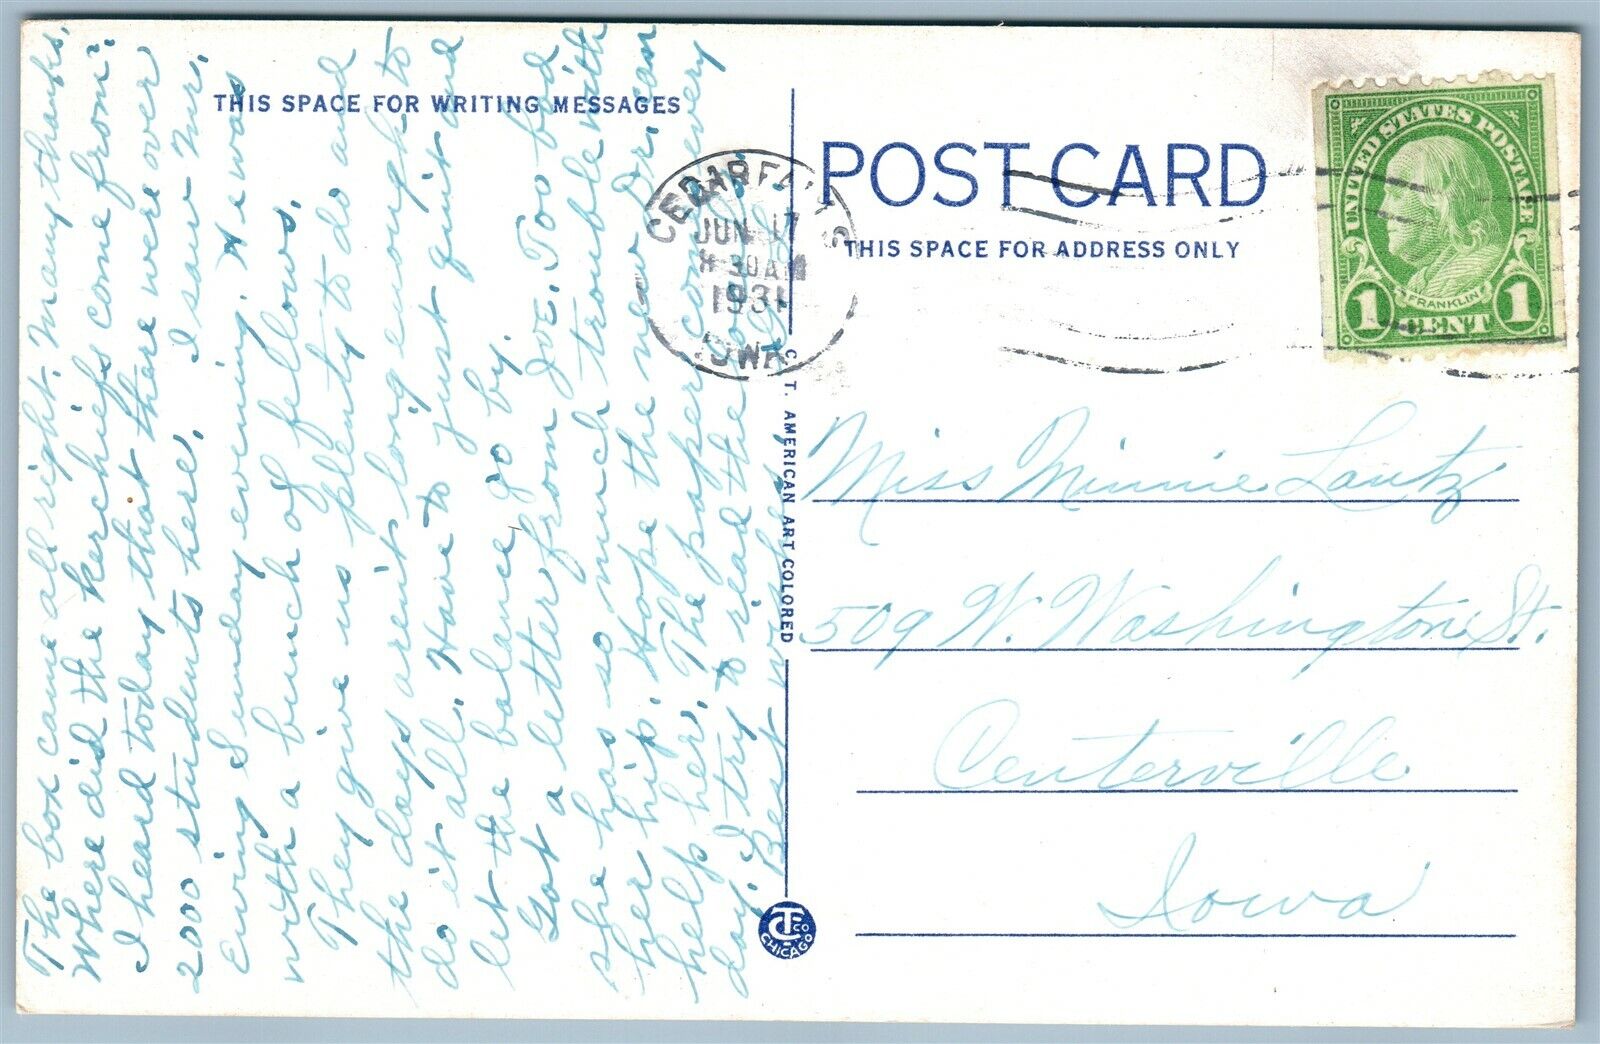 The box came all right. Many thanks,
Where did the kerchiefs come from?
I heard today that there were over
2000 students here. I saw Mr.
Ewing Sunday evening. He was
with a bunch of fellows.
They give us plenty to do and
the days aren't long enough to
do it all. Have to just quit and
let the balance go by.
Got a letter from Joe. Too bad
she has so much trouble with
her hip. Hope the new Dr. can
help her. The paper comes every
day. I try to read the
Best wishes
THIS SPACE FOR WRITING MESSAGES
POST CARD
THIS SPACE FOR ADDRESS ONLY
CEDAR FALLS
JUN 17
8 30 AM
1931
IOWA
UNITED STATES POSTAGE
FRANKLIN
1 CENT 1
C. T. AMERICAN ART COLORED
CT CO
CHICAGO
Miss Minnie Lantz
509 W. Washington St.
Centerville
Iowa